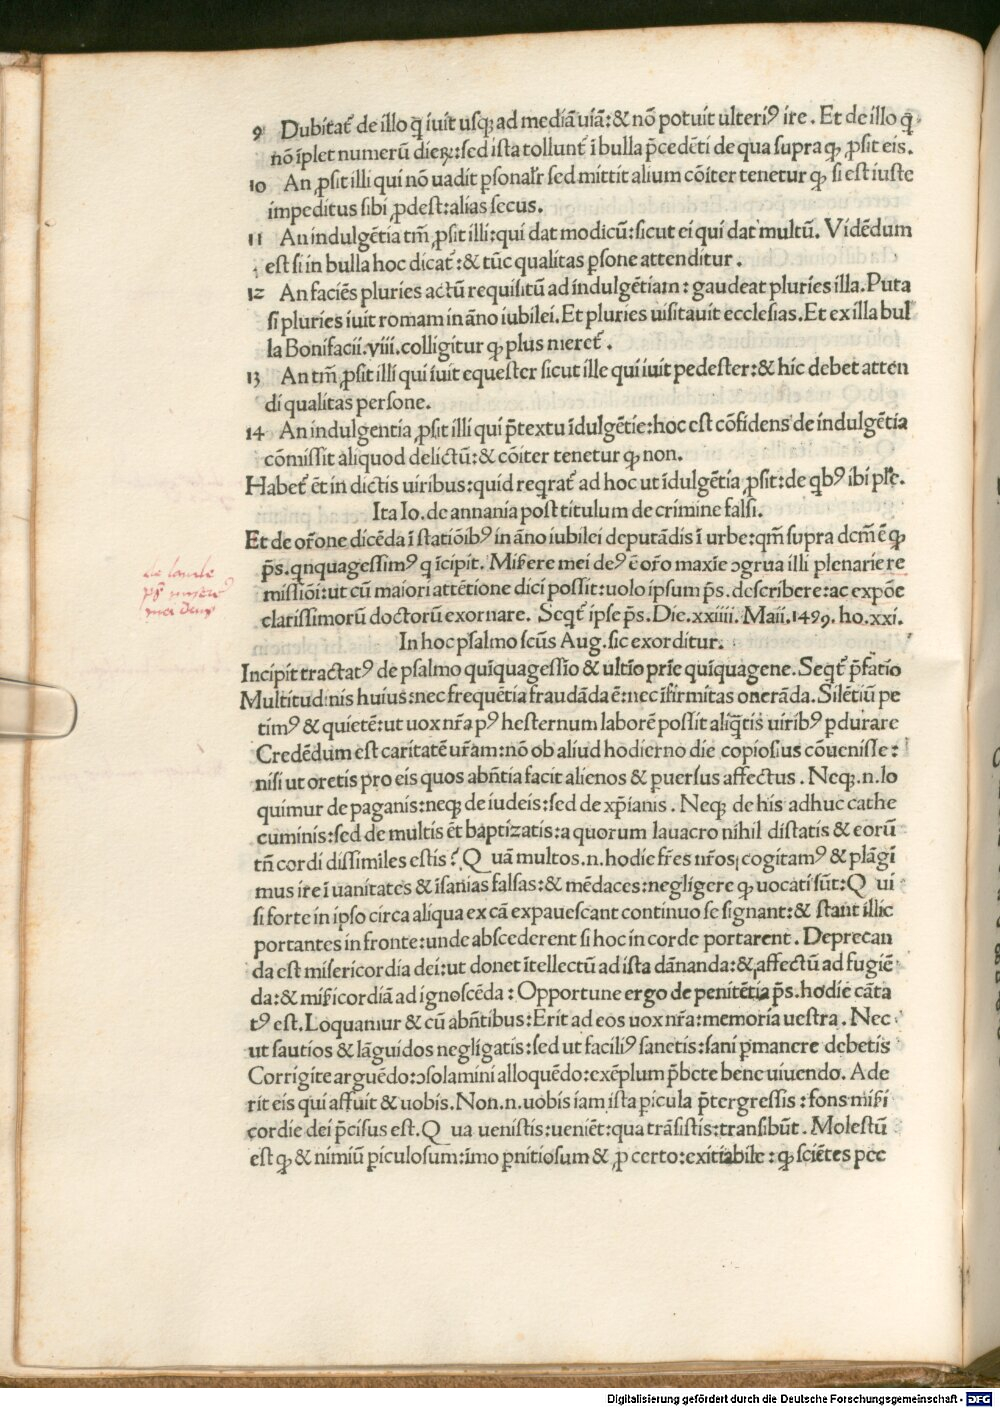 9 Dubitať de illo q̄ iuit usq; ad mediā uiā: & nō potuit ulteriꝰ ire. Et de illo q̄
nō īplet numerū dieꝝ: sed ista tolluntˀ ī bulla p̄cedēti de qua supra qꝫ ꝓsit eis.
10 An ꝓsit illi qui nō uadit ꝑsonalr̄ sed mittit alium cōiter tenetur qꝫ si est iuste
impeditus sibi ꝓdest: alias secus.
11 An indulgētia tm̄ ꝓsit illi: qui dat modicū: sicut ei qui dat multū. Vidēdum
est si in bulla hoc dicať: & tūc qualitas ꝑsone attenditur.
12 An faciēs pluries actū requisitū ad indulgētiam: gaudeat pluries illa. Puta
si pluries iuit romam in āno iubilei. Et pluries uisitauit ecclesias. Et ex illa bul
la Bonifacii. viii. colligitur qꝫ plus mereť.
13 An tm̄ ꝓsit illi qui iuit equester sicut ille qui iuit pedester: & hic debet atten
di qualitas persone.
14 An indulgentia ꝓsit illi qui p̄textu īdulgētie: hoc est cōfidens de indulgētia
cōmissit aliquod delictū: & cōiter tenetur qꝫ non.
Habeť ēt in dictis uiribus: quid reqrať ad hoc ut īdulgētia ꝓsit: de qbꝰ ibi plr̄e.
Ita Io. de annania post titulum de crimine falsi.
Et de or̄one dicēda ī statiōibꝰ in āno iubilei deputādis ī urbe: qm̄ supra dcm̄ ē qꝫ
p̄s. qnquagessimꝰ q īcipit. Misere mei deꝰ ē or̄o maxīe ↄgrua illi plenarie re
missiōi: ut cū maiori attētione dici possit: uolo ipsum p̄s. describere: ac expōe
clarissimorū doctorū exornare. Seqť ipse p̄s. Die. xxiiii. Maii. 1499. ho. xxi.
de laude
ps misere
mei deus
In hoc psalmo scūs Aug. sic exorditur.
Incipit tractatꝰ de psalmo quīquagessīo & ultīo prīe quīquagene. Seqť p̄fatīo
Multitudinis huius: nec frequētia fraudāda ē: nec īfirmitas onerāda. Silētiū pe
timꝰ & quietē: ut uox nr̄a pꝰ hesternum laborē possit aliq̄tis uiribꝰ ꝑdurare
Credēdum est caritatē ur̄am: nō ob aliud hodierno die copiosius cōuenisse:
nisi ut oretis pro eis quos abn̄tia facit alienos & ꝑuersus affectus. Neqꝫ. n. lo
quimur de paganis: neqꝫ de iudeis: sed de xp̄ianis. Neqꝫ de his adhuc cathe
cuminis: sed de multis ēt baptizatis: a quorum lauacro nihil distatis & eorū
tn̄ cordi dissimiles estis? Q uā multos. n. hodie fr̄es nr̄os cogitamꝰ & plāgī
mus ire ī uanitates & īsanias falsas: & mēdaces: negligere qꝫ uocati sūt: Q ui
si forte in ipso circa aliqua ex cā expauescant continuo se signant: & stant illic
portantes in fronte: unde abscederent si hoc in corde portarent. Deprecan
da est misericordia dei: ut donet ītellectū ad ista dānanda: & affectū ad fugiē
da: & mīsicordiā ad ignoscēda: Opportune ergo de penitētia p̄s. hodie cāta
tꝰ est. Loquamur & cū abn̄tibus: Erit ad eos uox nr̄a: memoria uestra. Nec
ut sautios & lāguidos negligatis: sed ut faciliꝰ sanetis: sani ꝑmanere debetis
Corrigite arguēdo: ↄsolamini alloquēdo: exēplum p̄bete bene uiuendo. Ade
rit eis qui affuit & uobis. Non. n. uobis iam ista ꝑicula p̄tergressis: fons misi
cordie dei p̄cisus est. Q ua uenistis: ueniēt: qua trāsistis: transibūt. Molestū
est qꝫ & nimiū ꝑiculosum: īmo ꝑnitiosum & ꝓ certo: exitiabile: qꝫ sciētes pec
Digitalisierung gefördert durch die Deutsche Forschungsgemeinschaft - DFG